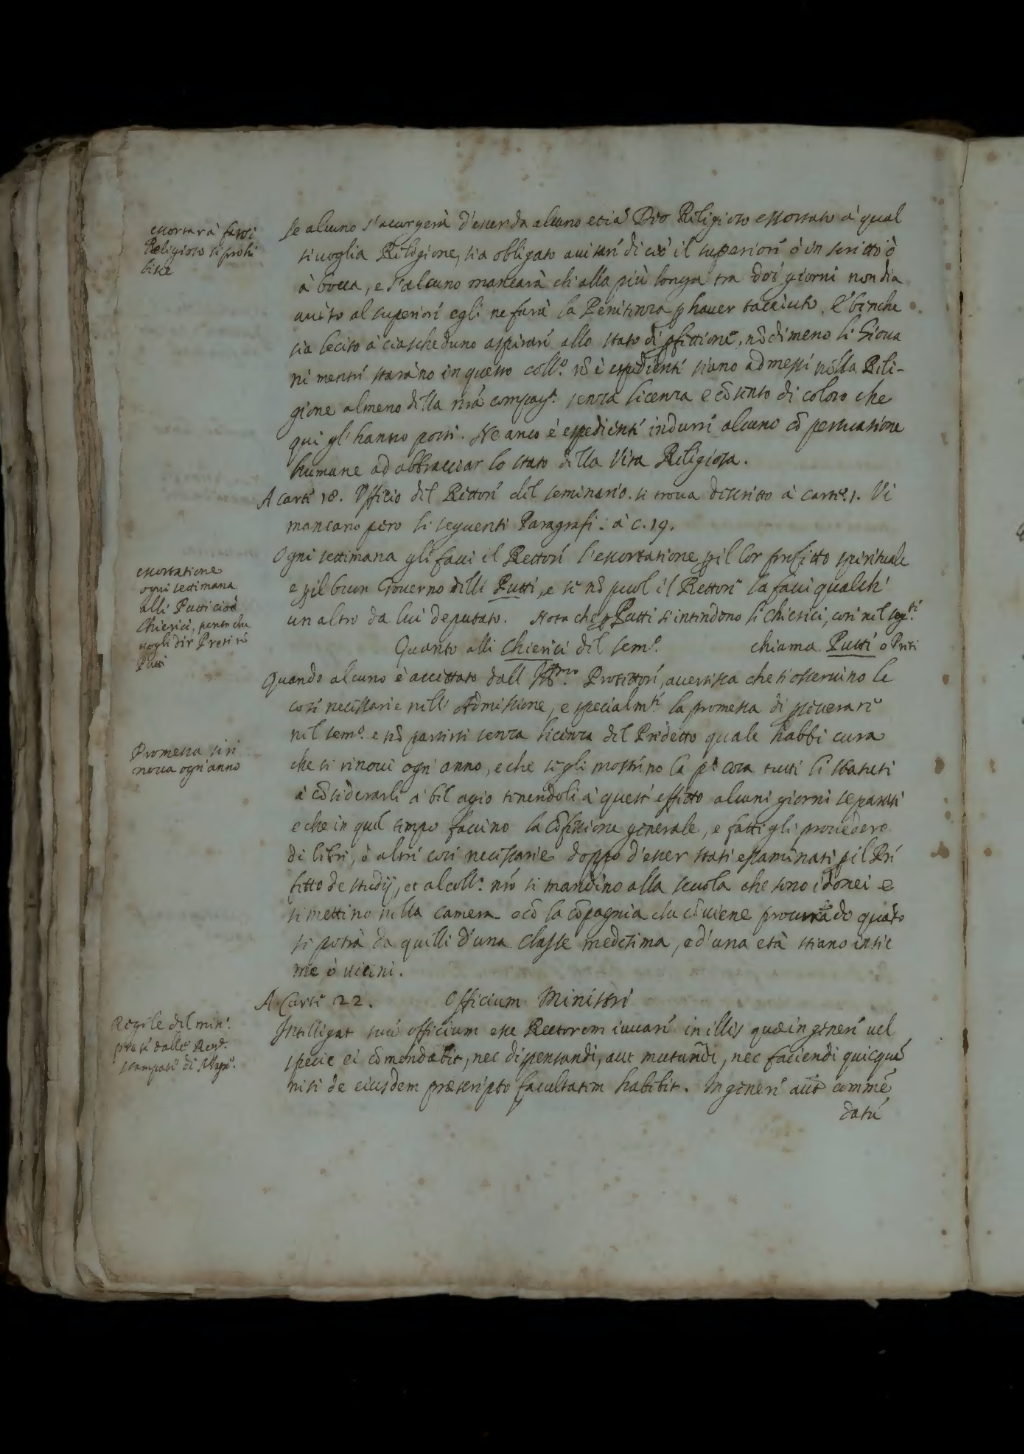 essortar à farsi
Religioso si prohi
bisce
Se alcuno s'acorgerà d'esser da alcuno etiā Dio Religioso essortato a qual
si uoglia Religione, sia obligato auisare di ciò il superiore ò in scritto ò
à bocca, e s'alcuno mancarà che alla più longa tra doi giorni non dia
auiso al superiore egli ne farà la Penitenza p hauer taciuto. E benche
sia lecito a ciascheduno aspirare allo stato di pfettione, nōdimeno li Gioua
ni mentre starāno in questo coll.o nō è espediente siano admessi nella Reli-
gione almeno della nrā compag.a senza licenza e cōsenso di coloro che
qui gl'hanno posti. Ne anco è espediente indurre alcuno cō persuasione
humane ad abbracciar lo stato della Vita Religiosa.
A carte 18. Officio del Rettore del seminario. si troua descritto à carte 1. Vi
mancano però li seguenti Paragrafi: à c. 19.
essortatione
ogni settimana
alli Putti cioè
Chierici, penso che
uogli dir Preti nō
Putti
Ogni settimana gli facci il Rettore l'essortatione p il lor profitto spirituale
e p il buon Gouerno delli Putti, e se nō puol il Rettore la facci qualche
un altro da lui deputato. Nota che p Putti s'intendono li chierici, così nel seg.te
Quanto alli Chierici del sem.o chiama Putti ò Preti
Quando alcuno è accettato dall' Ill.mo Protettore, auertisca che si osseruino le
cose necessarie nelle Admissione, e specialm.te la promessa di pseuerare
nel sem.o e nō partirsi senza licenza del Predetto quale habbi cura
Promessa si ri
noua ogn'anno
che si rinoui ogn'anno, e che se gli mostrino la p.a cosa tutti li statuti
a cōsiderarli a bel agio tenendoli a quest'effetto alcuni giorni separati
e che in quel tempo faccino la cōfessione generale, e fatti gli prouedere
di libri, ò altre cose necessarie doppo d'esser stati essaminati p il Pre
fetto de studij, et al coll.o nrō si mandino alla scuola che sono idonei e
si mettino nella camera e cō la cōpagnia che cōuiene procurādo quāto
si potrà da quelli d'una classe medesima, e d'una età stiano insie
me ò uicini.
A Carte 22. Officium Ministri
Regole del min.o
prese dalle
stampate di
Intelligat suū officium esse Rectorem iuuare in illis quae in genere uel
specie ei cōmendabit, nec dispensandi, aut mutandi, nec faciendi quicquā
nisi de eiusdem praescripto facultatem habebit. In genere autē comme
datū